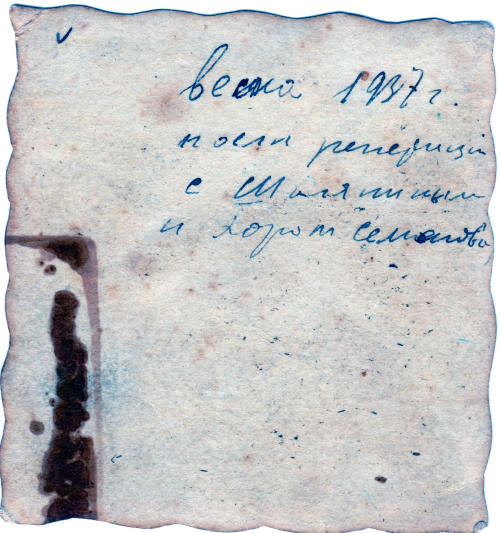 весна 1937 г.
после репетиции
с Шаляпиным
и хором Семёнова